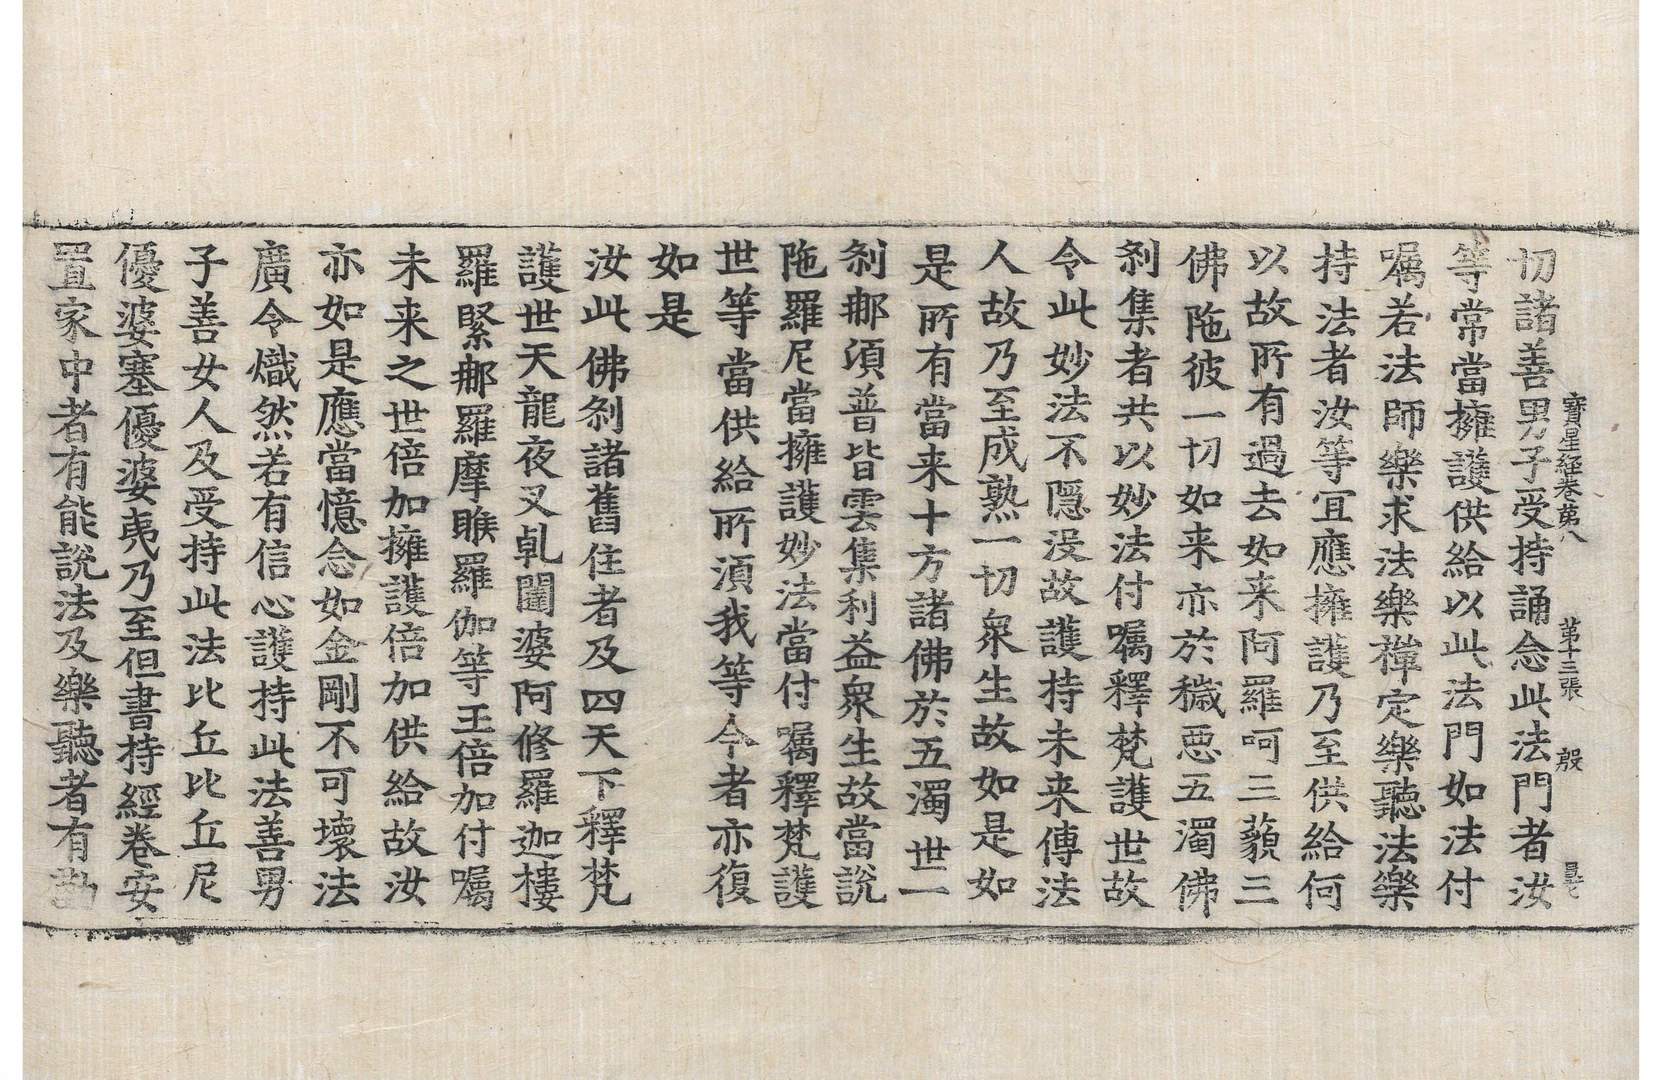 寶星經卷第八 第十三張 殷
切諸善男子受持誦念此法門者汝
等常當擁護供給以此法門如法付
囑若法師樂求法樂禪定樂聽法樂
持法者汝等宜應擁護乃至供給何
以故所有過去如来阿羅呵三藐三
佛陁彼一切如来亦於穢惡五濁佛
刹集者共以妙法付囑釋梵護世故
令此妙法不隱没故護持未来傳法
人故乃至成熟一切衆生故如是如
是所有當来十方諸佛於五濁世一
刹那湏普皆雲集利益衆生故當説
陁羅尼當擁護妙法當付囑釋梵護
世等當供給所湏我等令者亦復
如是
汝此佛刹諸舊住者及四天下釋梵
護世天龍夜叉乹闥婆阿修羅迦樓
羅緊那羅摩睺羅伽等王倍加付囑
未来之世倍加擁護倍加供給故汝
亦如是應當憶念如金剛不可壞法
廣令熾然若有信心護持此法善男
子善女人及受持此法比丘比丘尼
優婆塞優婆夷乃至但書持經卷安
置家中者有能説法及樂聽者有勸